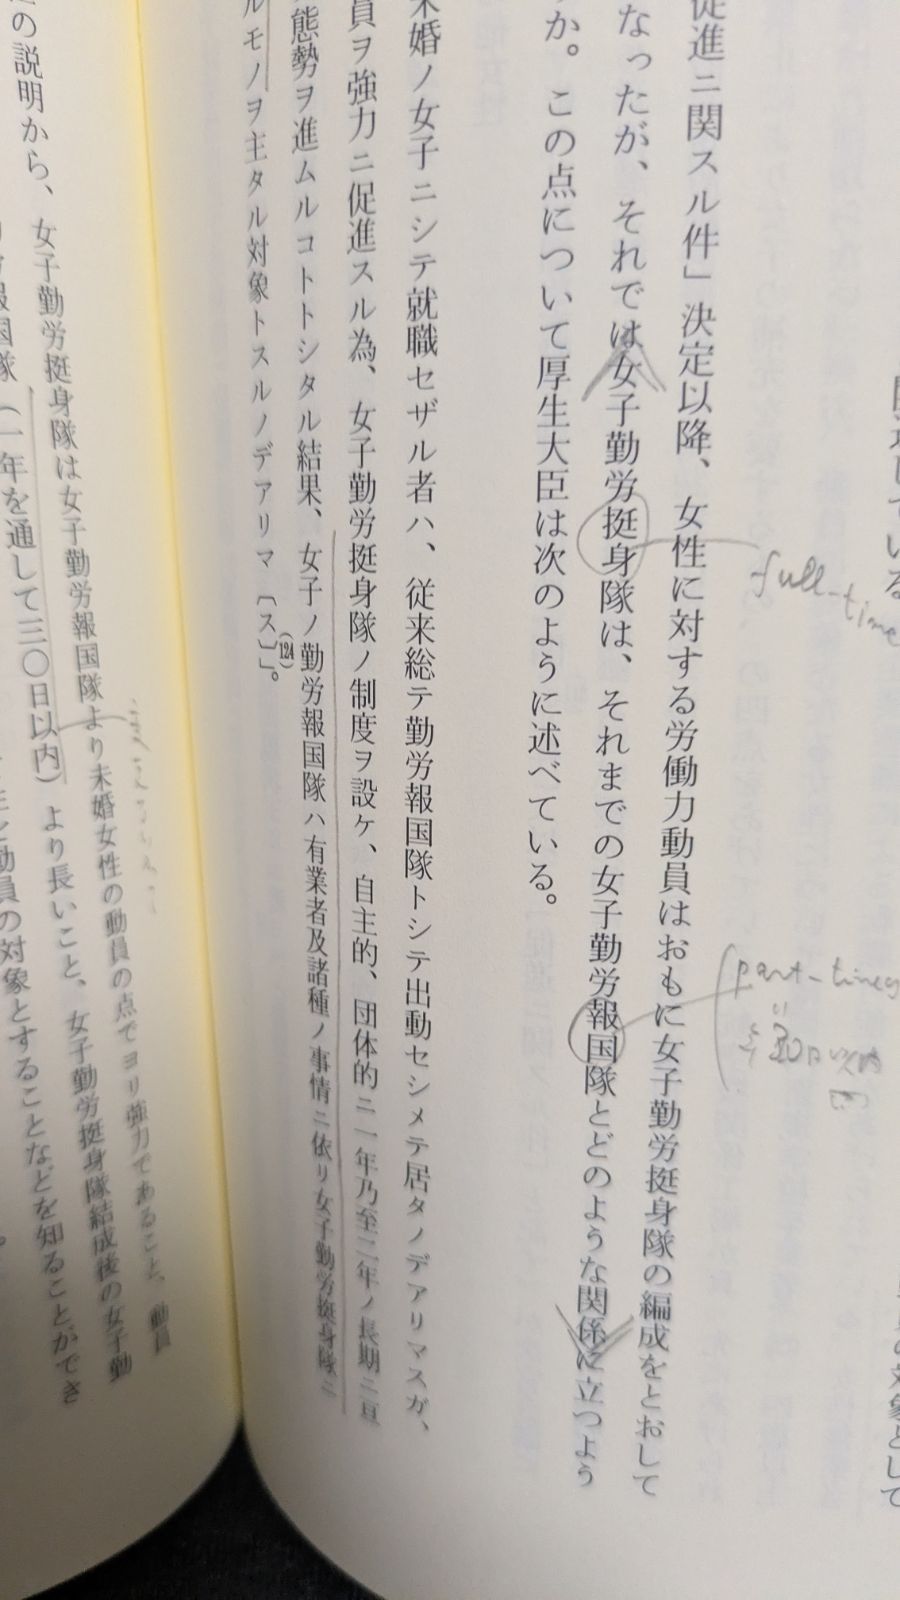 促進ニ関スル件」決定以降、女性に対する労働力動員はおもに女子勤労挺身隊の編成をとおして
なったが、それでは女子勤労挺身隊は、それまでの女子勤労報国隊とどのような関係に立つよう
か。この点について厚生大臣は次のように述べている。
未婚ノ女子ニシテ就職セザル者ハ、従来総テ勤労報国隊トシテ出動セシメテ居タノデアリマスガ、
員ヲ強力ニ促進スル為、女子勤労挺身隊ノ制度ヲ設ケ、自主的、団体的ニ一年乃至二年ノ長期ニ亘
態勢ヲ進ムルコトトシタル結果、女子ノ勤労報国隊ハ有業者及諸種ノ事情ニ依リ女子勤労挺身隊ニ
ルモノヲ主タル対象トスルノデアリマ〔ス〕」。
(124)
full-time
part-time
30日以内
の説明から、女子勤労挺身隊は女子勤労報国隊より未婚女性の動員の点でヨリ強力であること、動員
報国隊(一年を通して三〇日以内)より長いこと、女子勤労挺身隊結成後の女子勤
動員の対象とすることなどを知ることができ